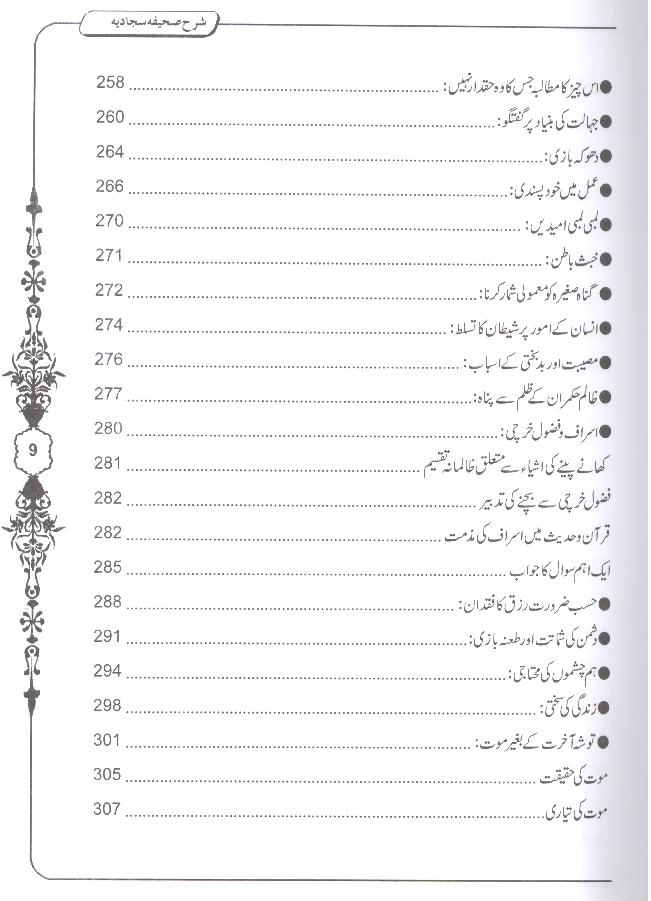 شرح صحیفہ سجادیہ
● اس چیز کا مطالبہ جس کا وہ حقدار نہیں: ........ 258
● جہالت کی بنیاد پر گفتگو: ........ 260
● دھوکہ بازی: ........ 264
● عمل میں خود پسندی: ........ 266
● لمبی لمبی امیدیں: ........ 270
● خبث باطن: ........ 271
● گناہ صغیرہ کو معمولی شمار کرنا: ........ 272
● انسان کے امور پر شیطان کا تسلط: ........ 274
● مصیبت اور بدبختی کے اسباب: ........ 276
● ظالم حکمران کے ظلم سے پناہ: ........ 277
● اسراف و فضول خرچی: ........ 280
کھانے پینے کی اشیاء سے متعلق ظالمانہ تقسیم ........ 281
فضول خرچی سے بچنے کی تدبیر ........ 282
قرآن و حدیث میں اسراف کی مذمت ........ 282
ایک اہم سوال کا جواب ........ 285
● حسب ضرورت رزق کا فقدان: ........ 288
● دشمن کی شماتت اور طعنہ بازی: ........ 291
● ہم چشموں کی محتاجی: ........ 294
● زندگی کی سختی: ........ 298
● توشہ آخرت کے بغیر موت: ........ 301
موت کی حقیقت ........ 305
موت کی تیاری ........ 307
9